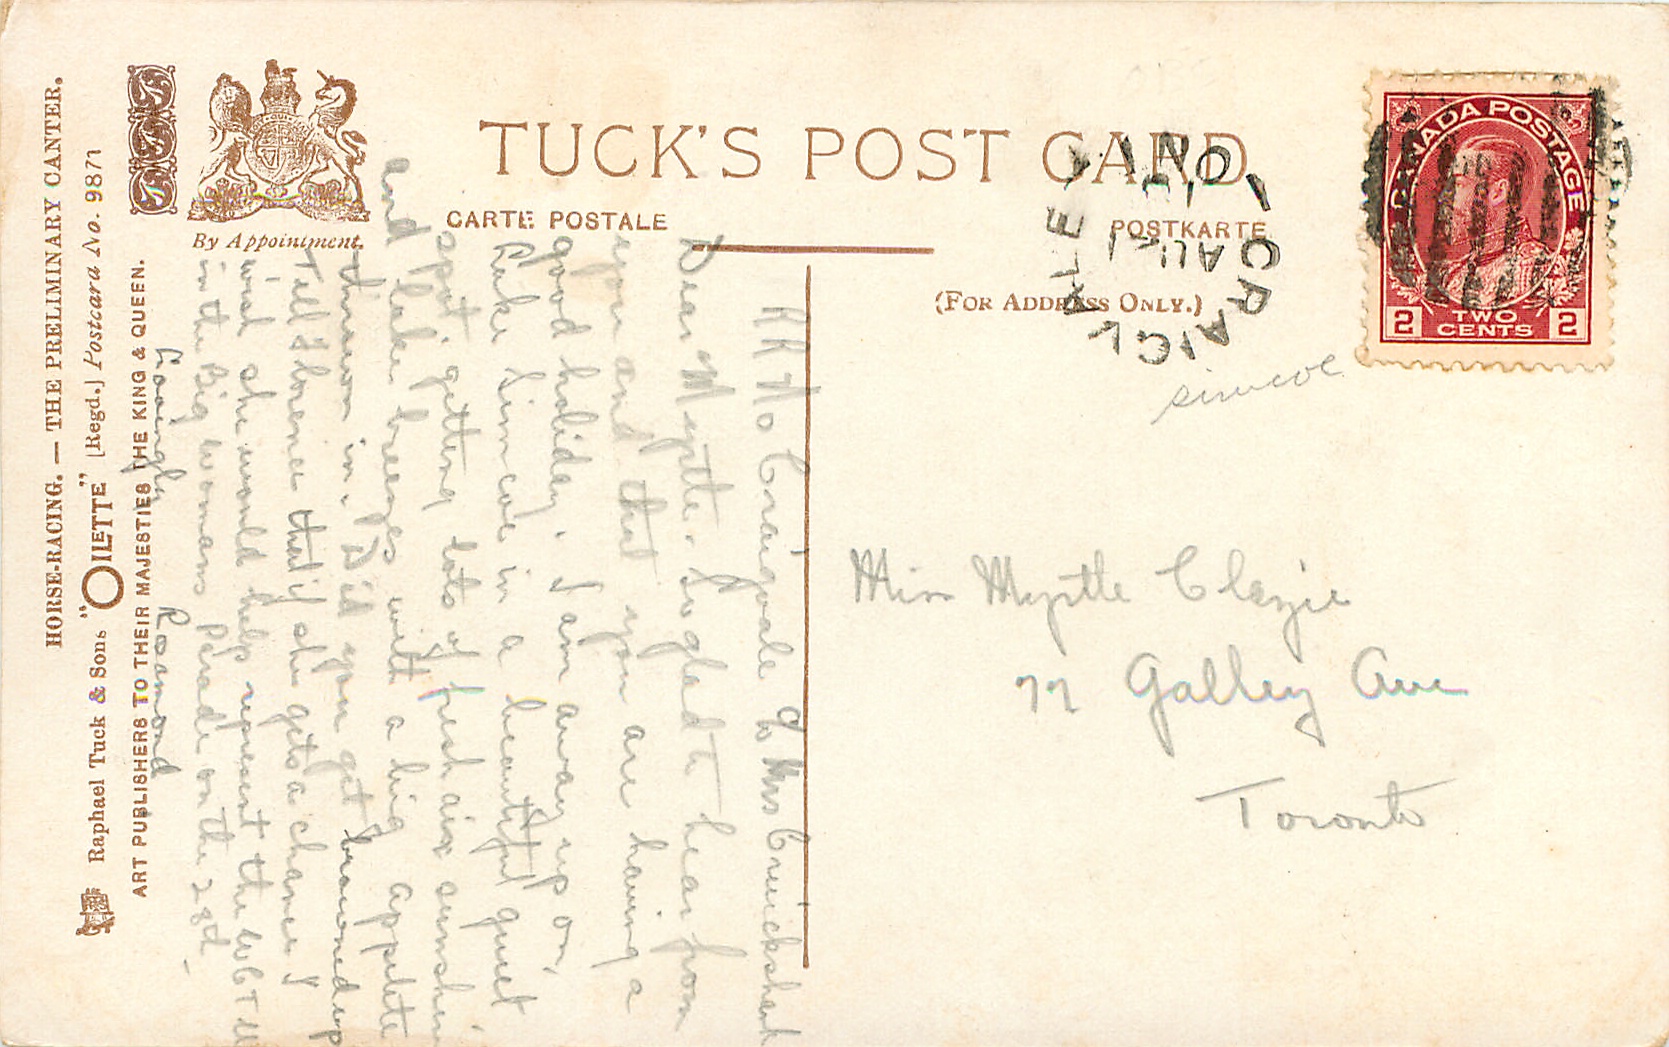 HORSE-RACING. — THE PRELIMINARY CANTER.
Raphael Tuck & Sons "OILETTE" [Regd.] Postcard No. 9871
ART PUBLISHERS TO THEIR MAJESTIES THE KING & QUEEN.
By Appointment.
TUCK'S POST CARD
CARTE POSTALE
POSTKARTE
(FOR ADDRESS ONLY.)
CANADA POSTAGE
2 TWO CENTS 2
CRAIGVALE
AU
ONT
simcoe
R R No Craigvale
c/o Mrs Cruickshank
Dear Myrtle. So glad to hear from
you and that you are having a
good holiday. I am away up on
Lake Simcoe in a beautiful quiet
spot getting lots of fresh air sunshine
and lake breezes with a big appetite
thrown in. Did you get browned up
Tell Florence that if she gets a chance I
wish she would help represent the W C T U
in the Big Womans Parade on the 28d -
Lovingly Rosamond
Miss Myrtle Clazie
77 Galley Ave
Toronto